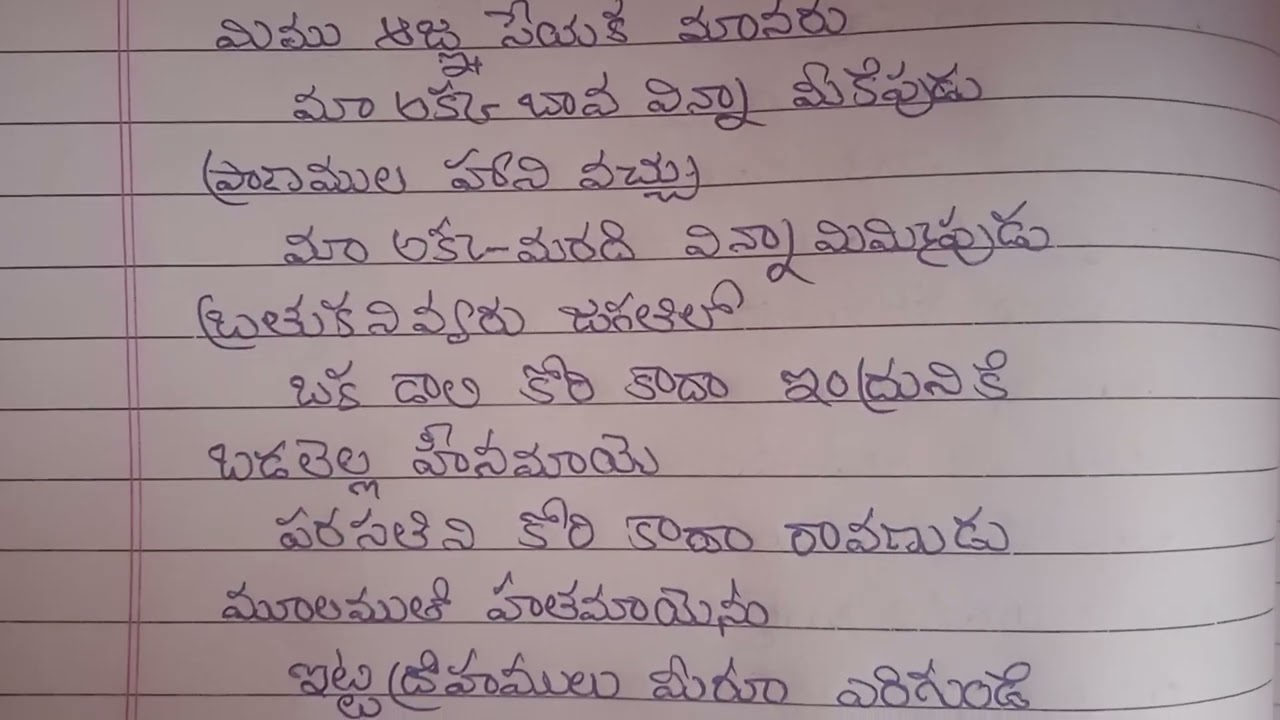 మిము ఆజ్ఞ సేయక మానరు
మా అక్క బావ విన్నా మీకెపుడు
ప్రాణముల హాని వచ్చు
మా అక్క మరది విన్నా మిమ్మిపుడు
బ్రతుకనివ్వరు జగతిలో
ఒక డాలి కోరి కాదా ఇంద్రునికి
ఒడలెల్ల హీనమాయె
పరసతిని కోరి కాదా రావణుడు
మూలముతో హతమాయెను
ఇట్టి ద్రోహములు మీరూ ఎరిగుండి